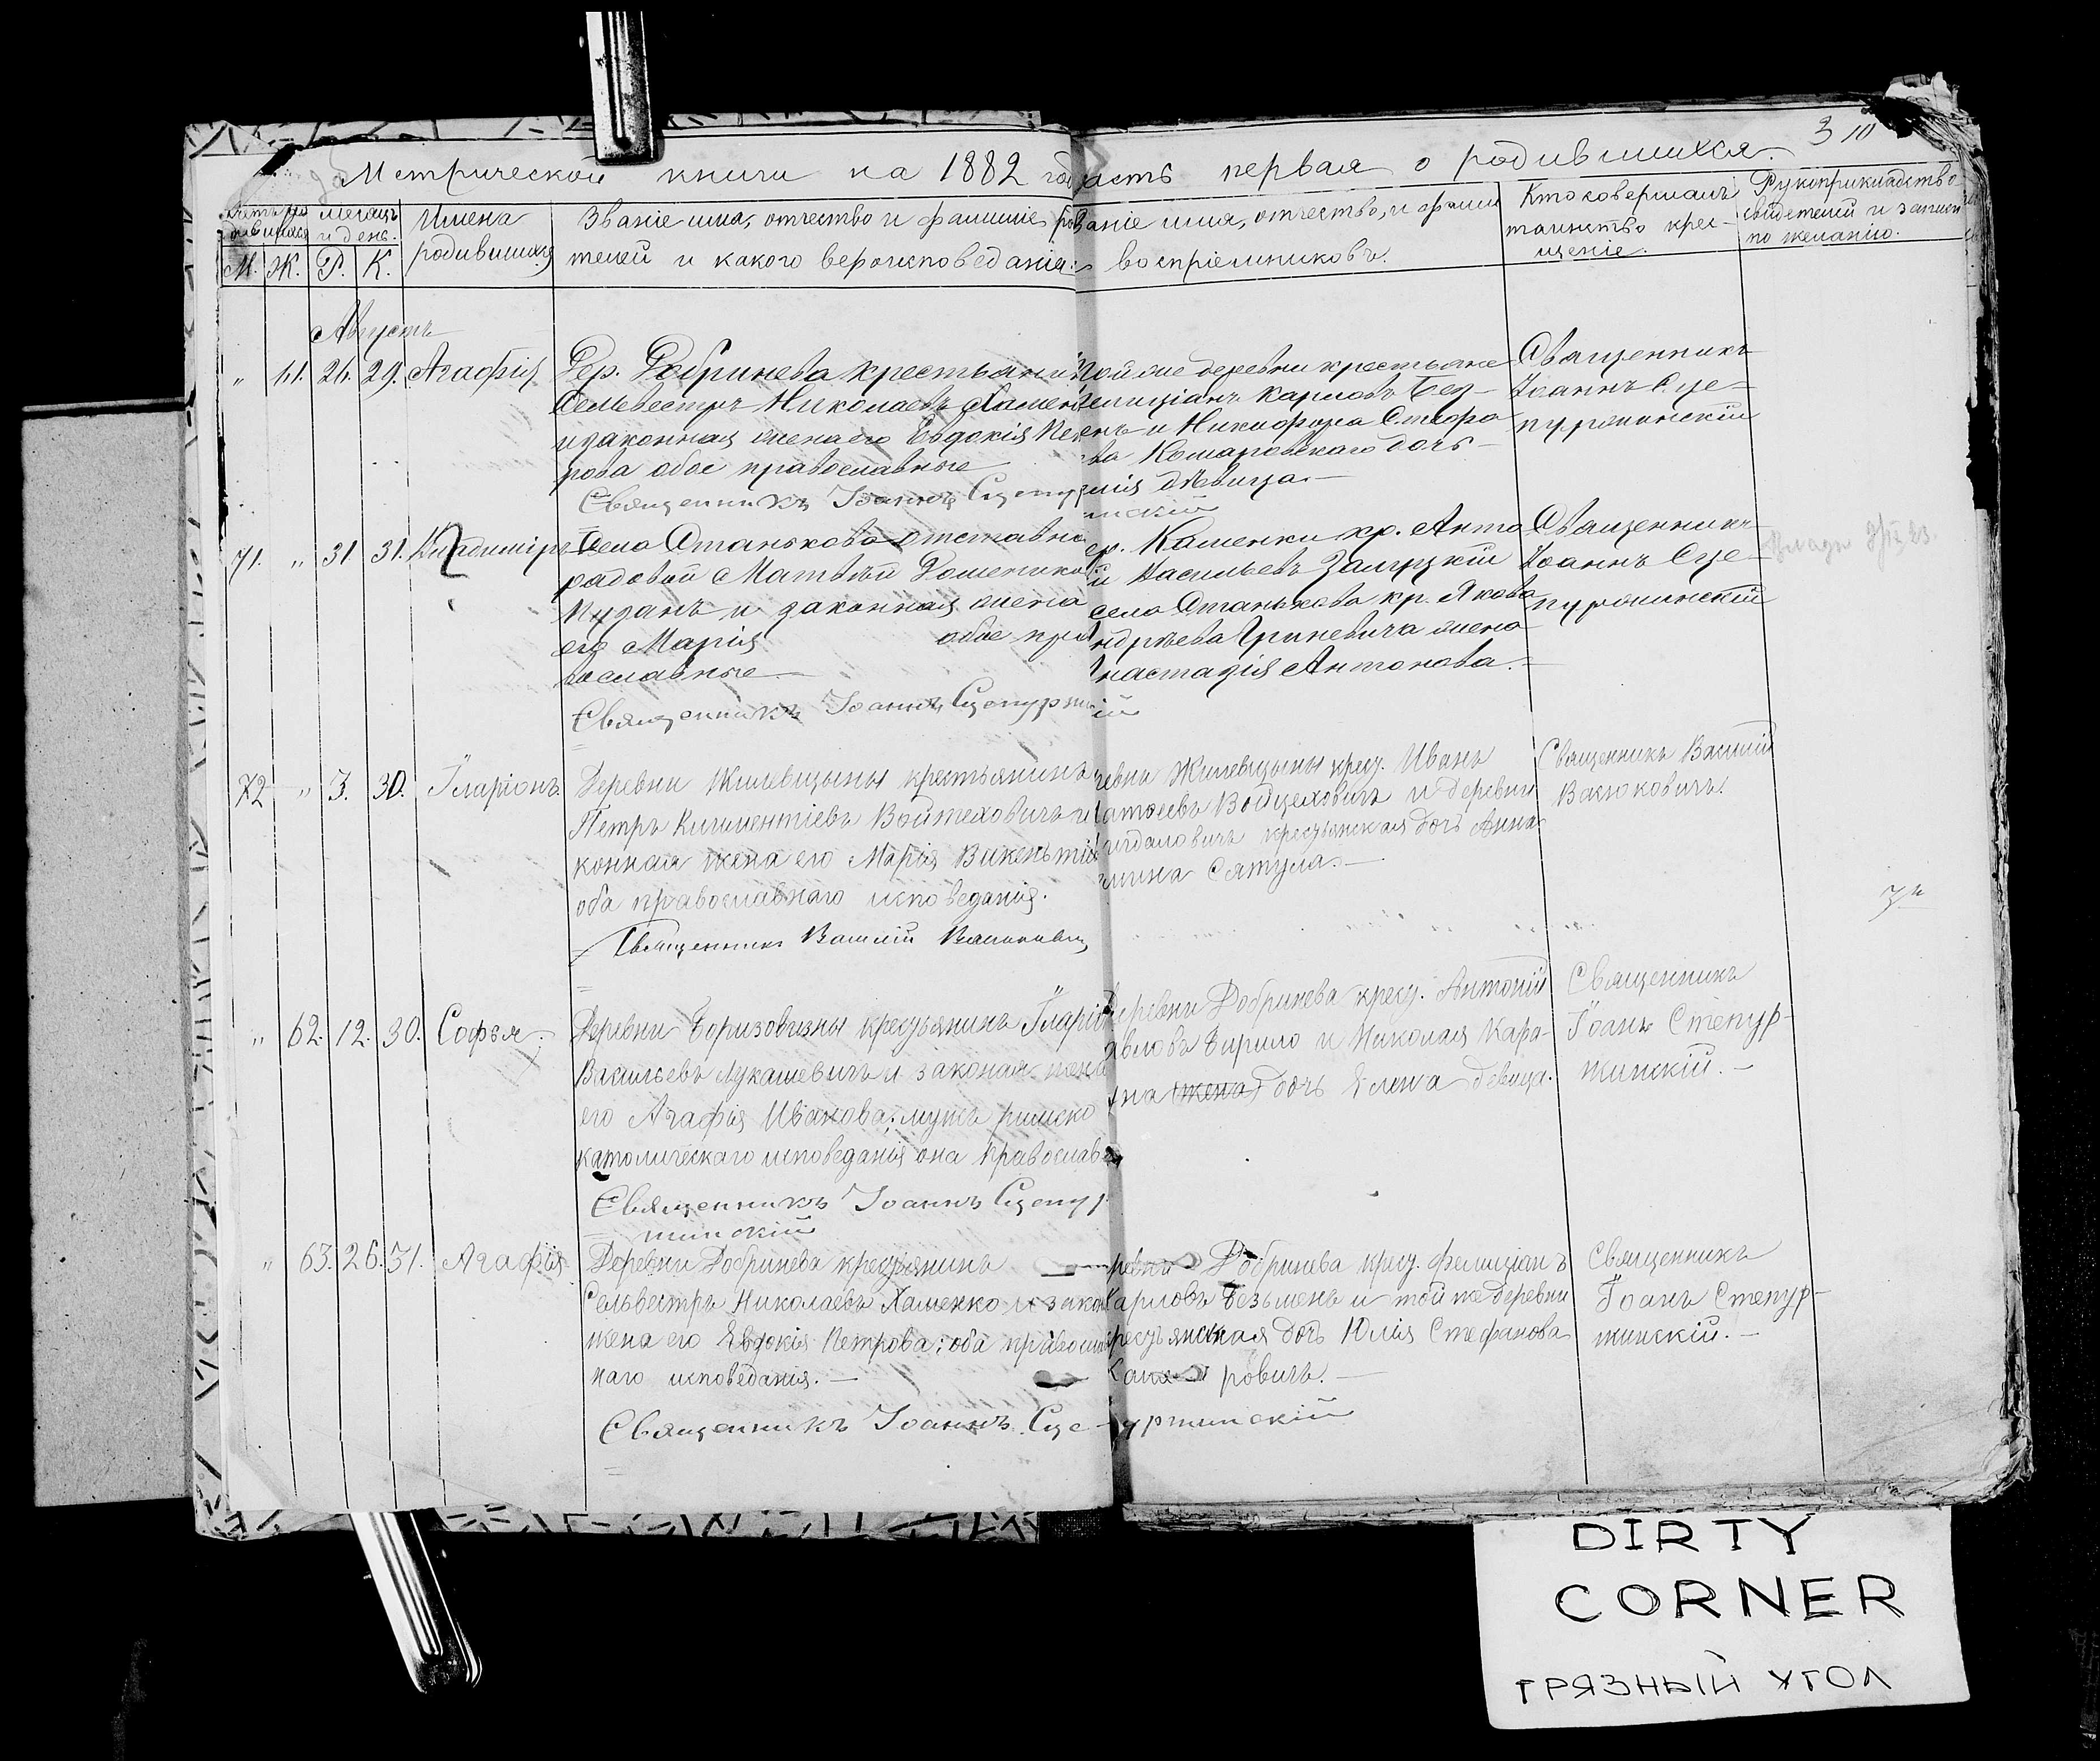 Метрической книги на 1882 год
часть первая о родившихся.
3 10
Имена
родившихся
М. Ж. Р. К.
и день.
Званіе имя, отчество и фамиліе роди
телей и какого вероисповеданія.
Званіе имя, отчество, и фами
воспріемниковъ.
Кто совершалъ
таинство кре-
щеніе.
Рукоприкладство
свидетелей и записи
по желанію.
Августъ
" 61. 26. 29. Агафія
Дер. Добринева крестьянин
Сельвестръ Николаевъ Хамен
и законная жена его Евдокія Пет
рова обое православные
Священникъ Іоаннъ Сцепур
той же деревни крестьяне
Фелиціанъ Карловъ Без-
енъ и Никифора Стефа
ва Комаровскаго дочь
лія дѣвица.
жинскій
Священникъ
Іоаннъ Сце-
пуржинскій
71. " 31 31. Владиміръ
Села Станьково отставно
рядовой Матвѣй
и законная жена
его Марія обое пра
вославные
Священникъ Іоаннъ Сцепуржин
ер. Каменки кр. Анто
й Васильевъ
села Станькова кр. Якова
ндрѣева Гриневича жена
Анастазія Антонова.
ій
Священникъ
Іоаннъ Сце-
пуржинскій
72 " 3. 30. Іларіонъ.
Деревни Жилевщыны крестьянинъ
Петръ Климентіевъ Войтеховичъ и
конная жена его Марія Викентій
оба православнаго исповеданія.
Священник Василій Васюкович
евни Жилевщыны крест. Иванъ
Матвеевъ Войцеховичъ и деревни
игдаловичъ крестьянская дочь Анна
Сятула.
Священникъ Василій
Васюковичъ.
" 62. 12. 30. Софья.
Деревни Боризовизны крестьянинъ Іларіо
Васильевъ Лукашевичъ и законая жена
его Агафія Иванова; мужъ римско
католическаго исповеданія она православ
Священникъ Іоаннъ Сцепур
жинскій
Деревни Добринева крест. Антоній
авловъ Бирило и Николая Кара-
на (жена) дочь Елена девица.
Священникъ
Іоанъ Степур-
жинскій.
" 63. 26. 31. Агафія
Деревни Добринева крестьянинъ
Сельвестръ Николаевъ Хаменко и закон
жена его Евдокія Петрова; оба православ
наго исповеданія.
Священникъ Іоаннъ Сце-
ревни Добринева крест. Фелиціанъ
Карловъ Безьменъ и той же деревни
крестьянская дочь Юлія Стефанова
ровичъ.
пуржинскій
Священникъ
Іоанъ Степур-
жинскій.
DIRTY
CORNER
ГРЯЗНЫЙ УГОЛ